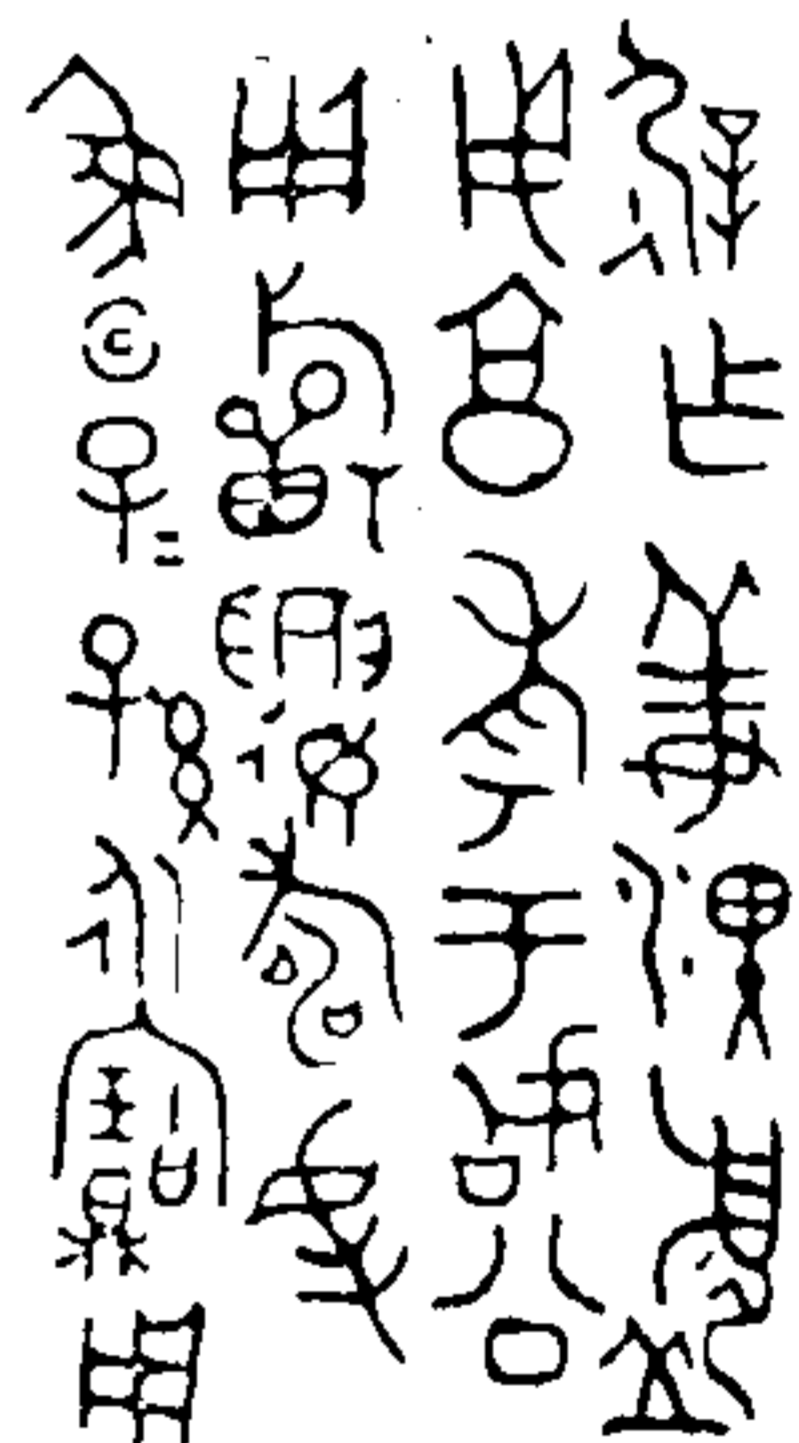 遟乍姜淠盨
用享孝于姑公
用祈眉壽屯
魯子=孫永寶用